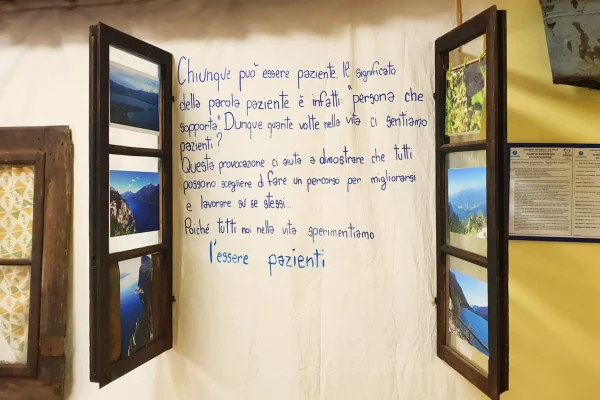 Chiunque può essere paziente. Il significato
della parola paziente è infatti: "persona che
sopporta". Dunque quante volte nella vita ci sentiamo
pazienti?
Questa provocazione ci aiuta a dimostrare che tutti
possono scegliere di fare un percorso per migliorarsi
e lavorare su se stessi...
Poiché tutti noi nella vita sperimentiamo
l'essere pazienti